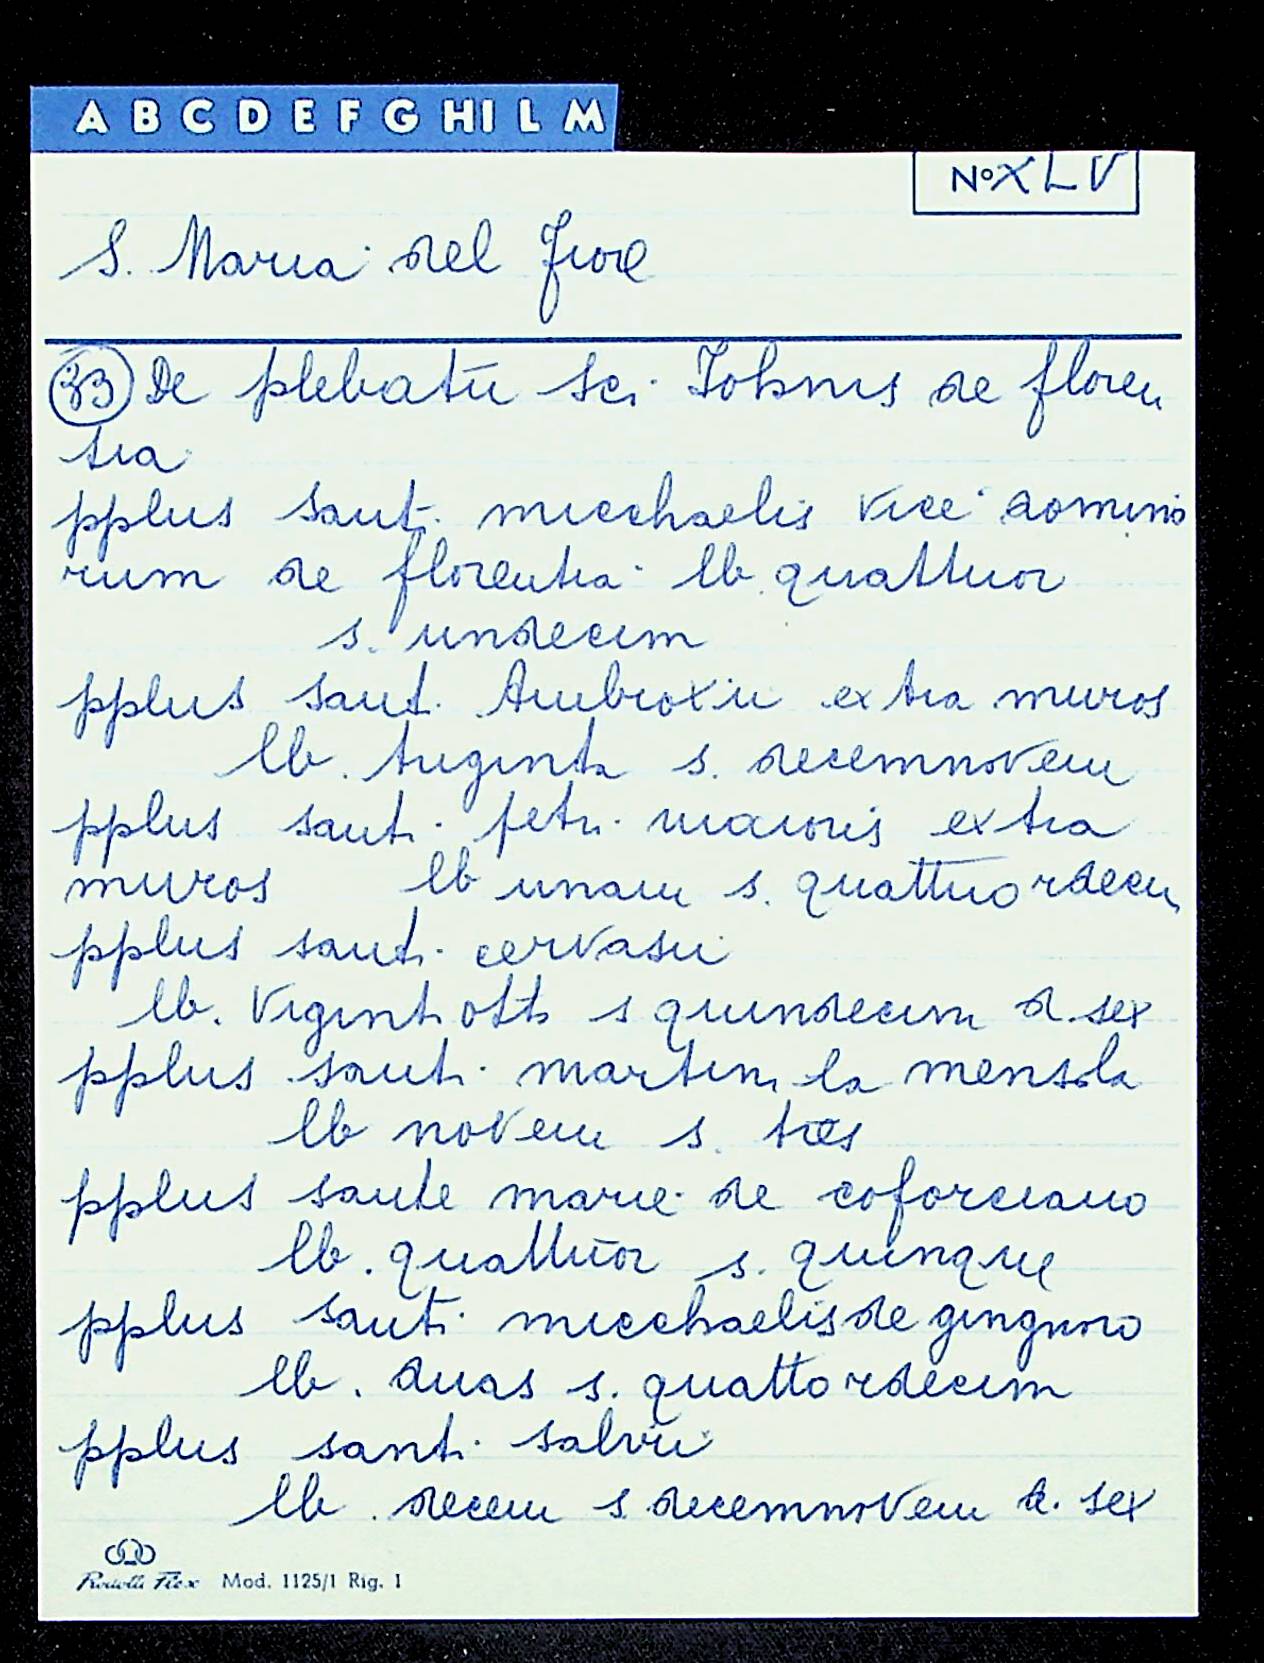 A B C D E F G H I L M
No XLV
S. Maria del Fiore
33 De plebatū sci. Iohnis de floren
tia
pplus sant. micchaelis vice domino
rum de florentia lb. quattuor
s. undecim
pplus sant. Ambroxii extra muros
lb. triginta s. decemnovem
pplus santi. petri. maioris extra
muros lb unam s. quattuordecim
pplus santi. cervasii
lb. Viginti otto s quindecim d. sex
pplus santi. martini la mensola
lb novem s. tres
pplus sante marie de coforciano
lb. quattuor s. quinque
pplus santi. micchaelis de gingnoro
lb. duas s. quattordecim
pplus santi. salvii
lb. decem s decemnovem d. sex
Mod. 1125/1 Rig. 1